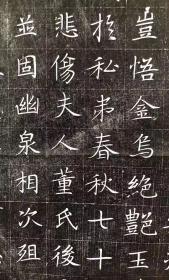 豈悟金烏絶艷玉
於私弟春秋七十
悲傷夫人董氏後
並固幽泉相次殂